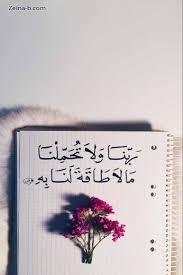 Zeina-b.com
رَبَّنَا وَلَا تُحَمِّلْنَا
مَا لَا طَاقَةَ لَنَا بِهِ